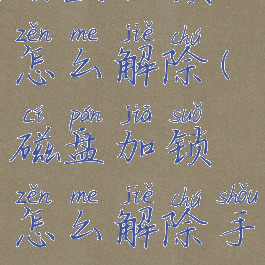 zěn me jiě chú
怎么解除(
cí pán jiā suǒ
磁盘加锁
zěn me jiě chú shǒu
怎么解除手